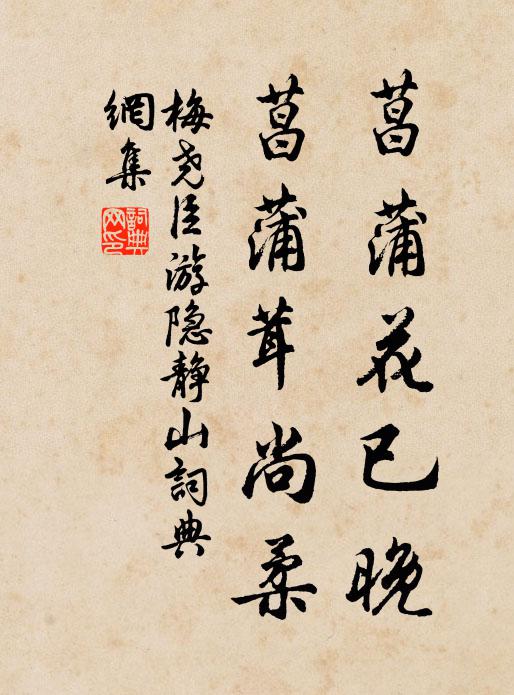 菖蒲花已晚
菖蒲茸尚柔
梅尧臣游隐静山詞典
網集
詞典
网印